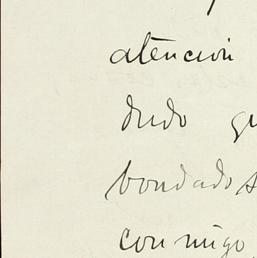 atencion
dudo qu
bondados
conmigo